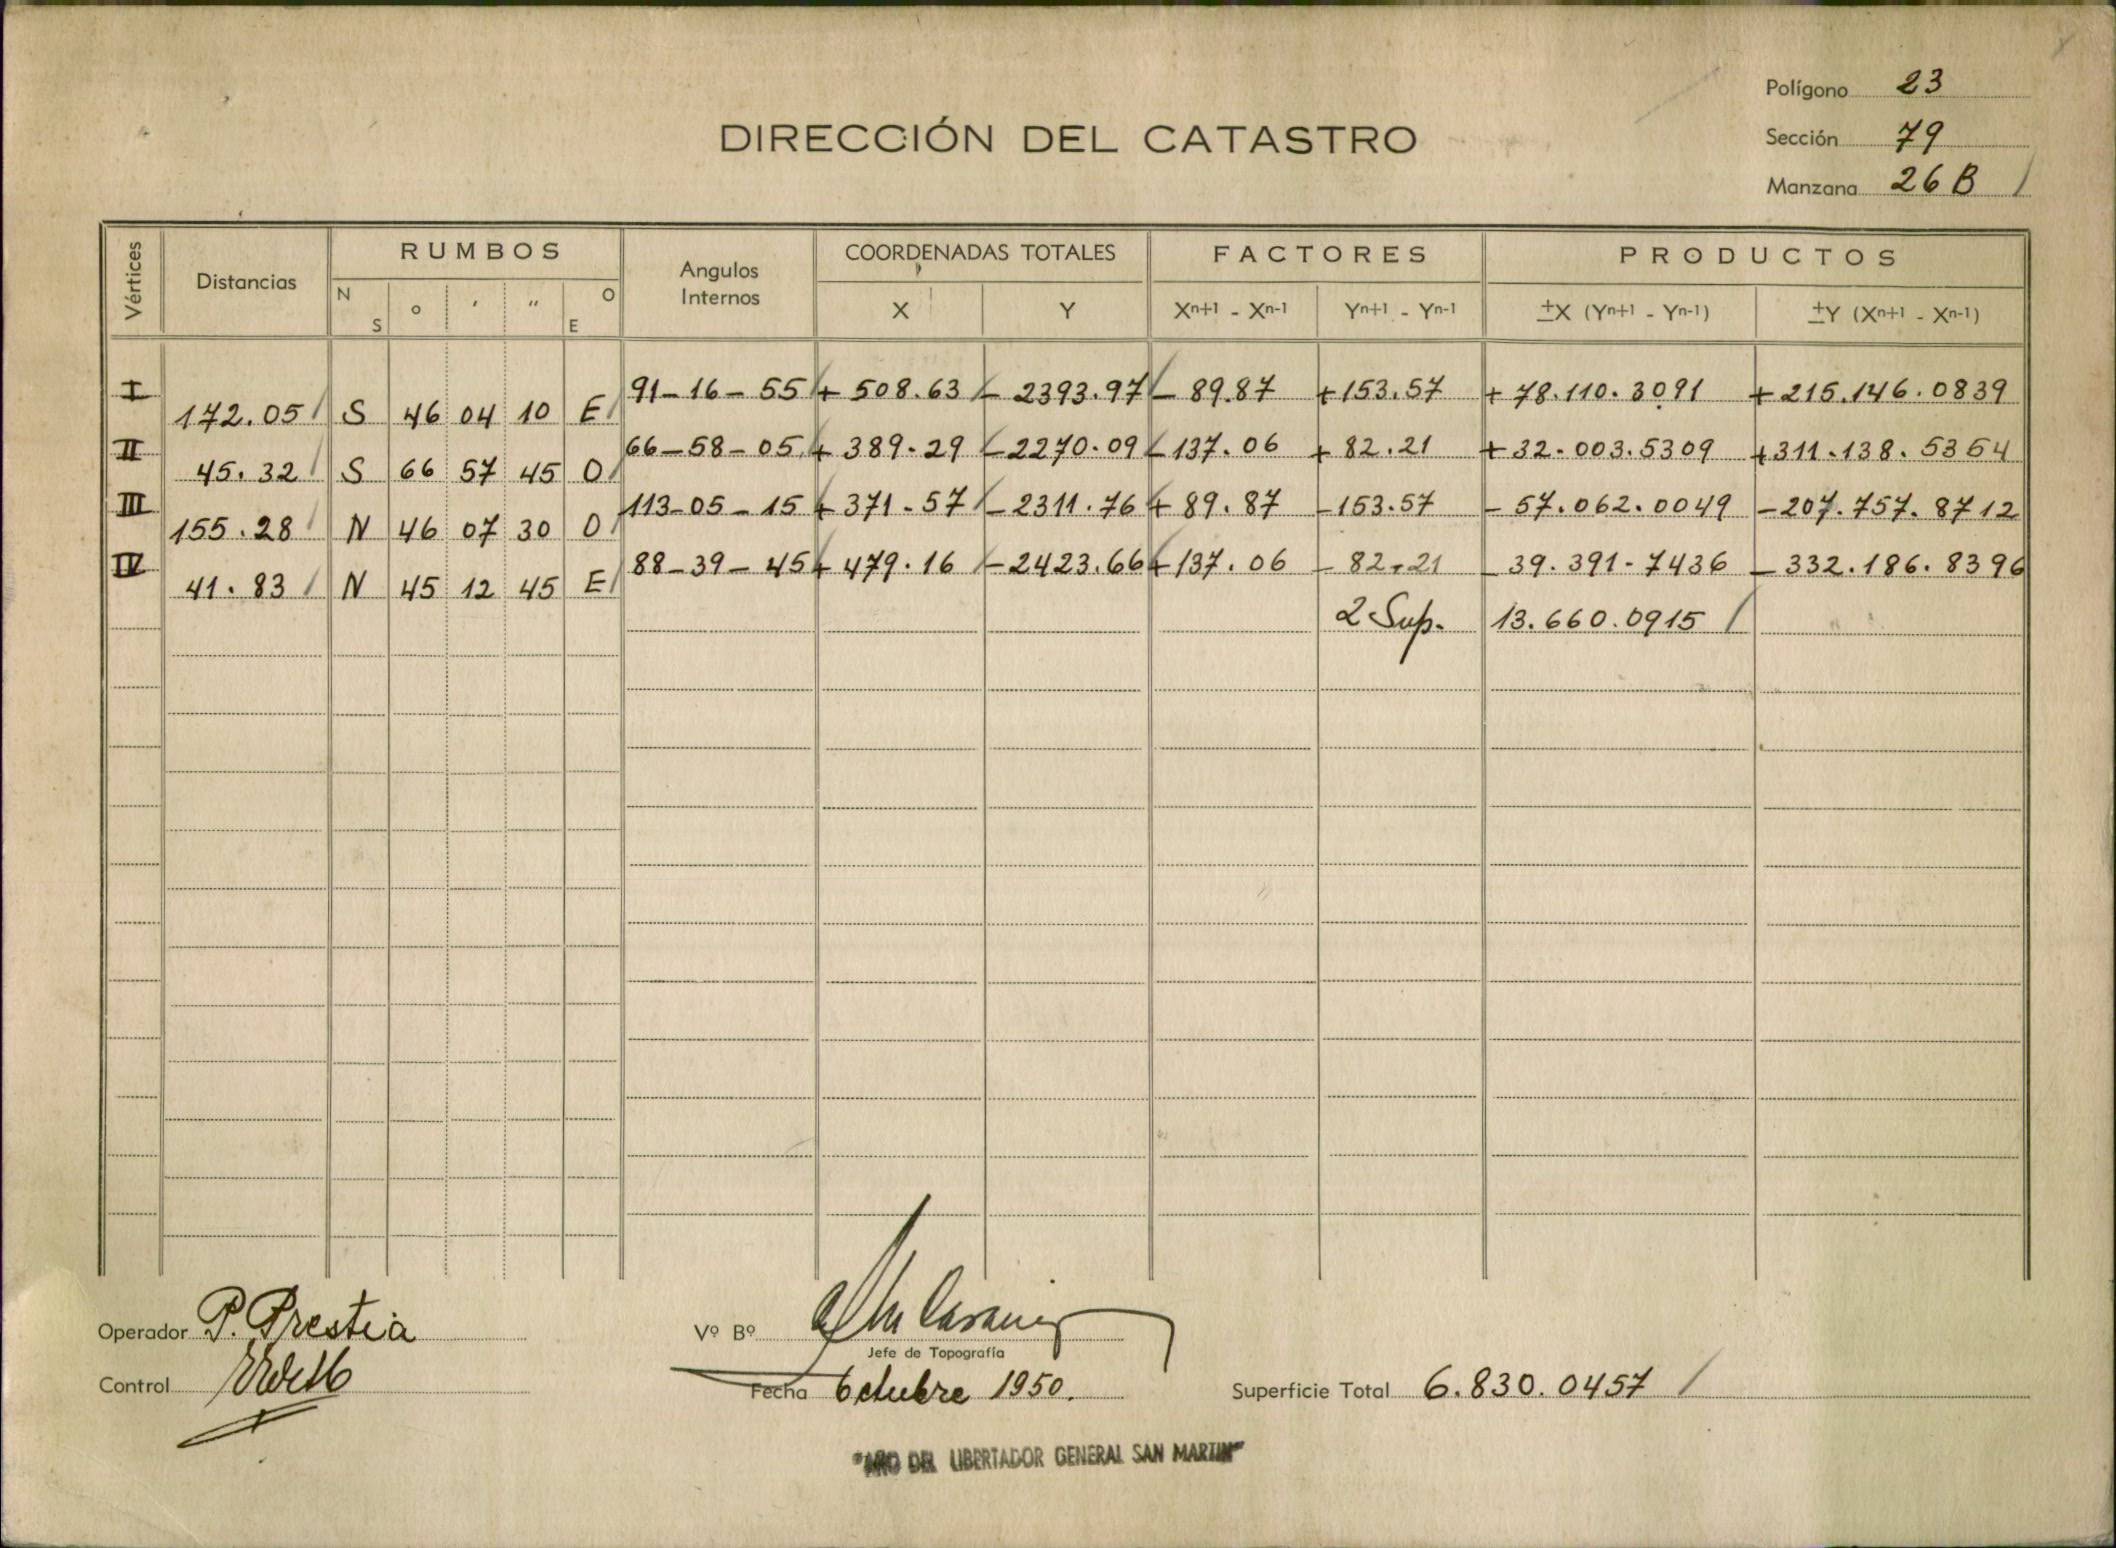 Polígono 23
DIRECCIÓN DEL CATASTRO
Sección 79
Manzana 26 B /
Vértices
Distancias
RUMBOS
N S ° ' " O E
Angulos Internos
COORDENADAS TOTALES
X Y
FACTORES
Xn+1 - Xn-1 Yn+1 - Yn-1
PRODUCTOS
±X (Yn+1 - Yn-1) ±Y (Xn+1 - Xn-1)
I 91-16-55 + 508.63 - 2393.97 - 89.87 +153.57 + 78.110.3091 + 215.146.0839
172.05 S 46 04 10 E
II 66-58-05 + 389.29 -2270.09 -137.06 + 82.21 +32.003.5309 +311.138.5364
45.32 S 66 57 45 O
III 113-05-15 + 371.57 -2311.76 + 89.87 -153.57 - 57.062.0049 -207.757.8712
155.28 N 46 07 30 O
IV 88-39-45 + 479.16 -2423.66 +137.06 - 82.21 - 39.391.7436 - 332.186.8396
41.83 N 45 12 45 E
2 Sup. 13.660.0915 /
Operador P. Prestia
Control
Vº Bº
Jefe de Topografía
Fecha Octubre 1950.
Superficie Total 6.830.0457 /
"AÑO DEL LIBERTADOR GENERAL SAN MARTIN"